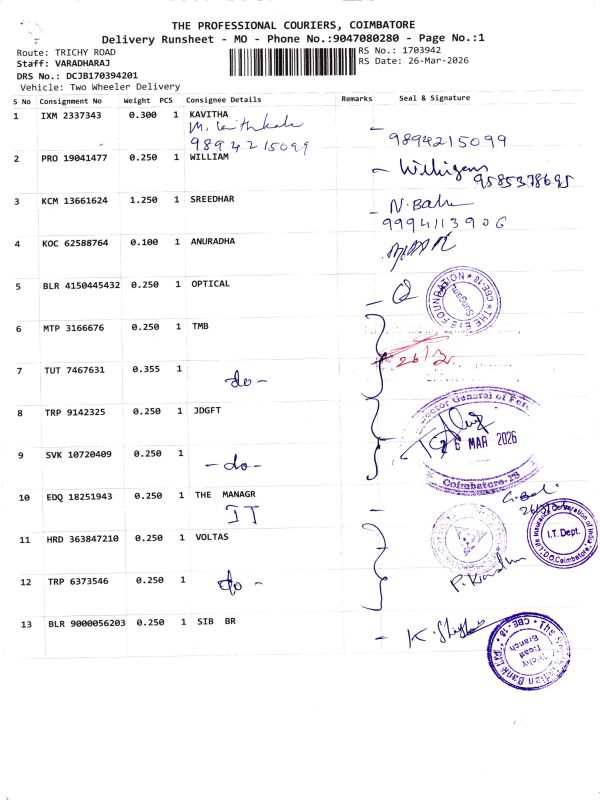 THE PROFESSIONAL COURIERS, COIMBATORE
Delivery Runsheet - MO - Phone No.:9047080280 - Page No.:1
Route: TRICHY ROAD
RS No.: 1703942
Staff: VARADHARAJ
RS Date: 26-Mar-2026
DRS No.: DCJB170394201
Vehicle: Two Wheeler Delivery
S No Consignment No Weight PCS Consignee Details Remarks Seal & Signature
1 IXM 2337343 0.300 1 KAVITHA
9894215099 9894215099
2 PRO 19041477 0.250 1 WILLIAM
9585378695
3 KCM 13661624 1.250 1 SREEDHAR
N. Balu
9994113906
4 KOC 62588764 0.100 1 ANURADHA
5 BLR 4150445432 0.250 1 OPTICAL
6 MTP 3166676 0.250 1 TMB
26/3
7 TUT 7467631 0.355 1
do -
8 TRP 9142325 0.250 1 JDGFT
26 MAR 2026
9 SVK 10720409 0.250 1
- do -
Coimbatore-18
10 EDQ 18251943 0.250 1 THE MANAGR
IT
11 HRD 363847210 0.250 1 VOLTAS
I.T. Dept.
12 TRP 6373546 0.250 1
do -
13 BLR 9000056203 0.250 1 SIB BR
Trichy
Road
Branch